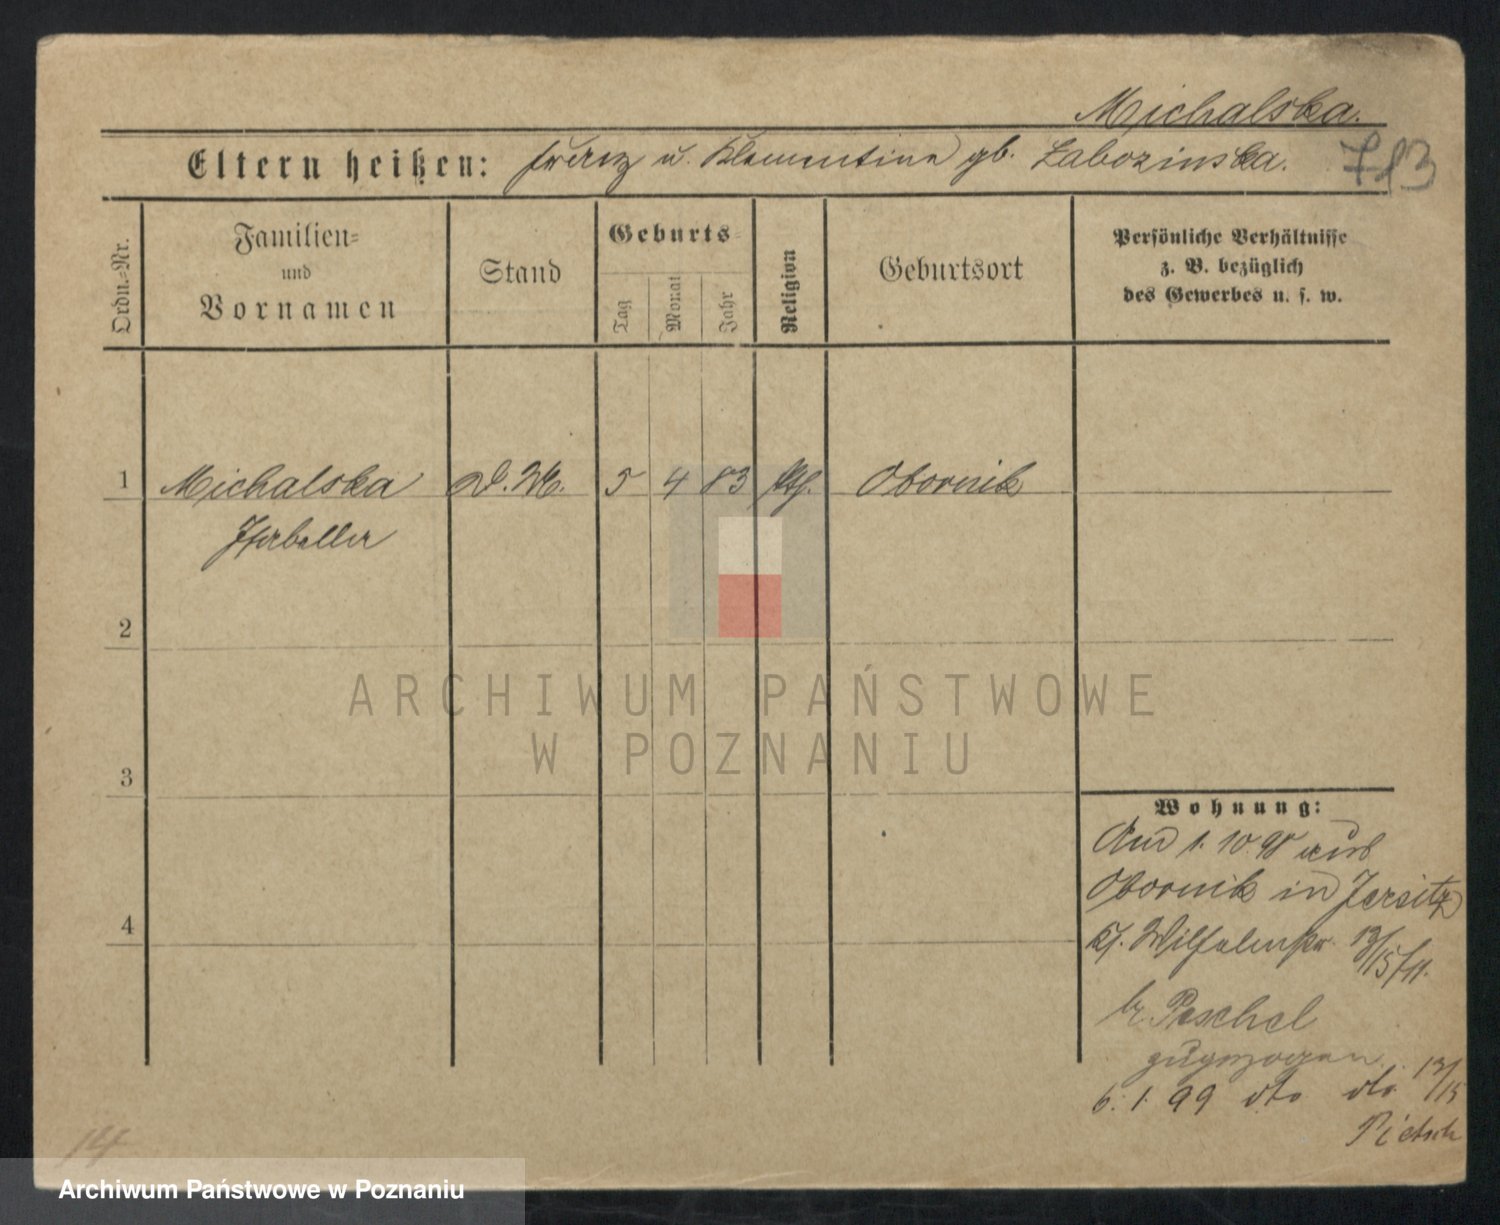 Michalska.
Eltern heißen: Franz u. Klementina gb. Labozinska.
713
Ordn.-Nr.
Familien-
und
Vornamen
Stand
Geburts-
Tag
Monat
Jahr
Religion
Geburtsort
Persönliche Verhältnisse
z. B. bezüglich
des Gewerbes u. s. w.
1 Michalska D. M. 5 4 83 kth. Obornik
Isabella
2
3
4
ARCHIWUM PAŃSTWOWE
W POZNANIU
Wohnung:
Am 1. 10. 98 aus
Obornik in Jersitz
Wilhelmstr. 13/15
br. Peschel
zugezogen
6. 1. 99 dto dto 13/15
Pietsch
14
Archiwum Państwowe w Poznaniu